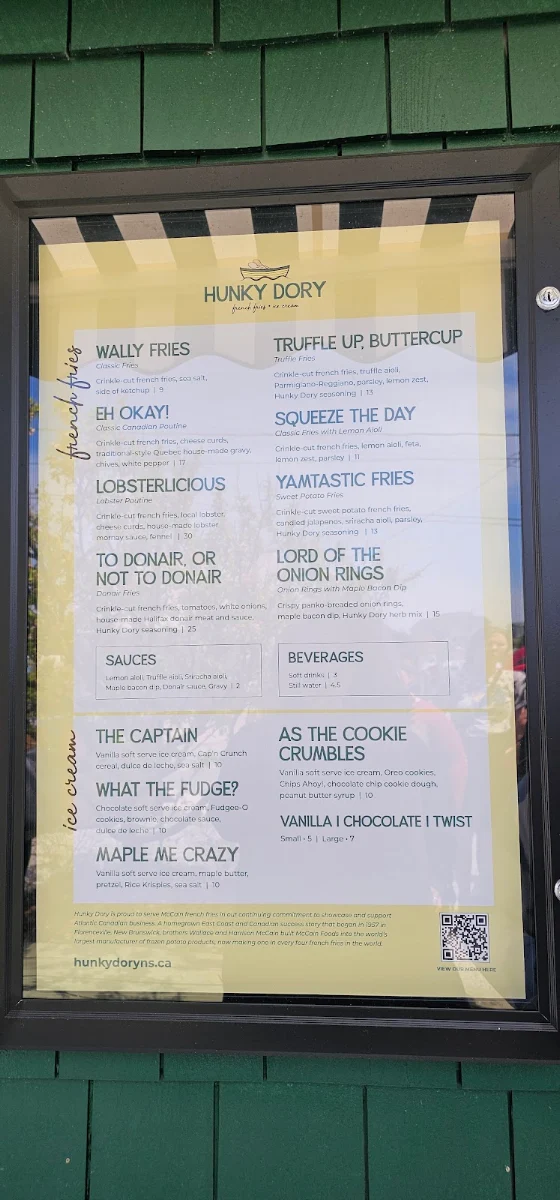 HUNKY DORY
french fries + ice cream
french fries
WALLY FRIES
Classic Fries
Crinkle-cut french fries, sea salt,
side of ketchup | 9
EH OKAY!
Classic Canadian Poutine
Crinkle-cut french fries, cheese curds,
traditional-style Quebec house-made gravy,
chives, white pepper | 17
LOBSTERLICIOUS
Lobster Poutine
Crinkle-cut french fries, local lobster,
cheese curds, house-made lobster
mornay sauce, fennel | 30
TO DONAIR, OR
NOT TO DONAIR
Donair Fries
Crinkle-cut french fries, tomatoes, white onions,
house-made Halifax donair meat and sauce,
Hunky Dory seasoning | 25
TRUFFLE UP, BUTTERCUP
Truffle Fries
Crinkle-cut french fries, truffle aioli,
Parmigiano-Reggiano, parsley, lemon zest,
Hunky Dory seasoning | 13
SQUEEZE THE DAY
Classic Fries with Lemon Aioli
Crinkle-cut french fries, lemon aioli, feta,
lemon zest, parsley | 11
YAMTASTIC FRIES
Sweet Potato Fries
Crinkle-cut sweet potato french fries,
candied jalapenos, sriracha aioli, parsley,
Hunky Dory seasoning | 13
LORD OF THE
ONION RINGS
Onion Rings with Maple Bacon Dip
Crispy panko-breaded onion rings,
maple bacon dip, Hunky Dory herb mix | 15
SAUCES
Lemon aioli, Truffle aioli, Sriracha aioli,
Maple bacon dip, Donair sauce, Gravy | 2
BEVERAGES
Soft drinks | 3
Still water | 4.5
ice cream
THE CAPTAIN
Vanilla soft serve ice cream, Cap'n Crunch
cereal, dulce de leche, sea salt | 10
WHAT THE FUDGE?
Chocolate soft serve ice cream, Fudgee-O
cookies, brownie, chocolate sauce,
dulce de leche | 10
MAPLE ME CRAZY
Vanilla soft serve ice cream, maple butter,
pretzel, Rice Krispies, sea salt | 10
AS THE COOKIE
CRUMBLES
Vanilla soft serve ice cream, Oreo cookies,
Chips Ahoy!, chocolate chip cookie dough,
peanut butter syrup | 10
VANILLA | CHOCOLATE | TWIST
Small • 5 | Large • 7
Hunky Dory is proud to serve McCain french fries in our continuing commitment to showcase and support
Atlantic Canadian business. A homegrown East Coast and Canadian success story that began in 1957 in
Florenceville, New Brunswick, brothers Wallace and Harrison McCain built McCain Foods into the world's
largest manufacturer of frozen potato products, now making one in every four french fries in the world.
hunkydoryns.ca
VIEW OUR MENU HERE